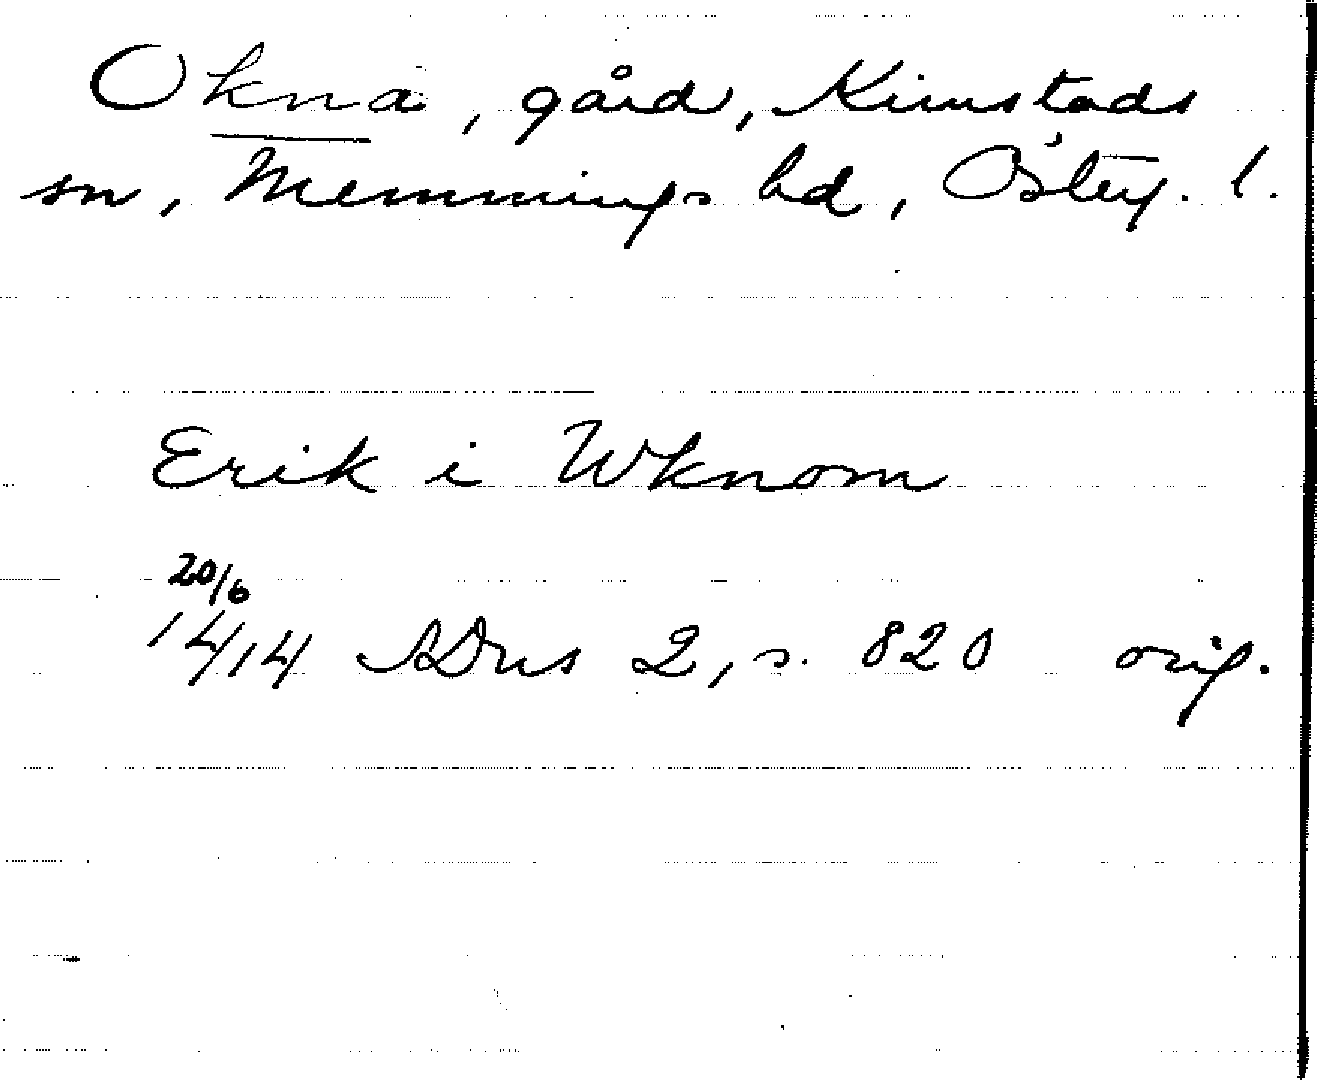 Okna, gård, Kimstads
sn, Memmings hd, Österg. l.
Erik i Wknom
20/6
1414 SDns 2, s. 820 orig.